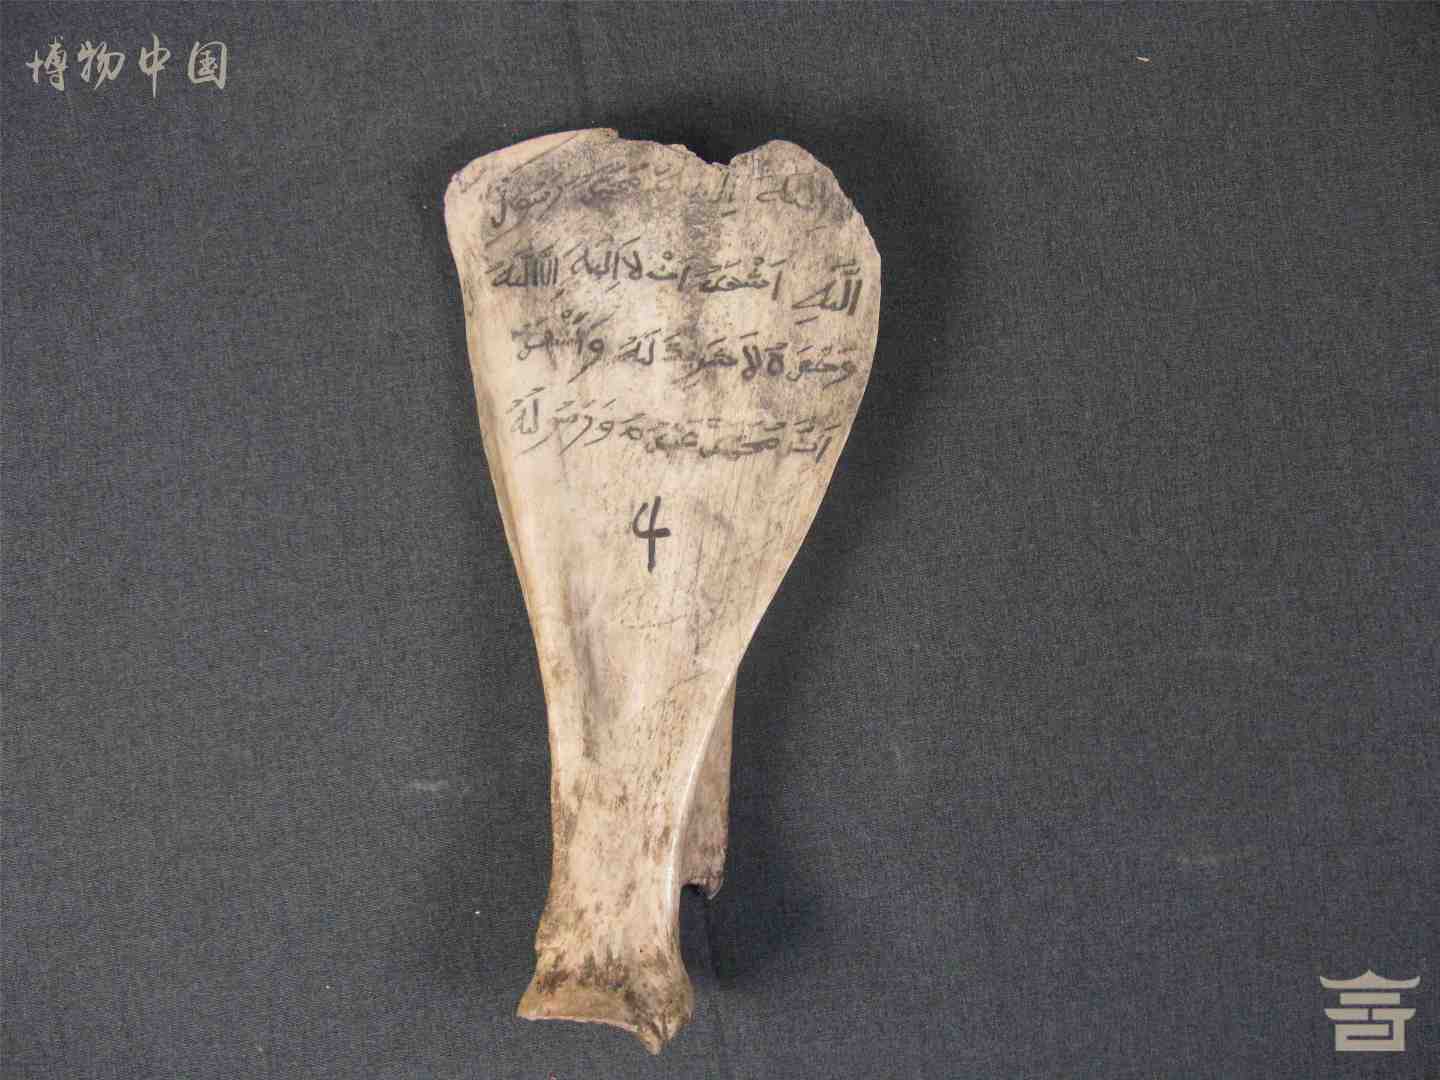 博物中国
الله إلا محمد رسول
اللَّهِ اَشْهَدُ اَنْ لَا اِلٰهَ اِلَّا اللَّهُ
وَحْدَهُ لَا شَرِيكَ لَهُ وَاَشْهَدُ
اَنَّ مُحَمَّدًا عَبْدُهُ وَرَسُولُهُ
4